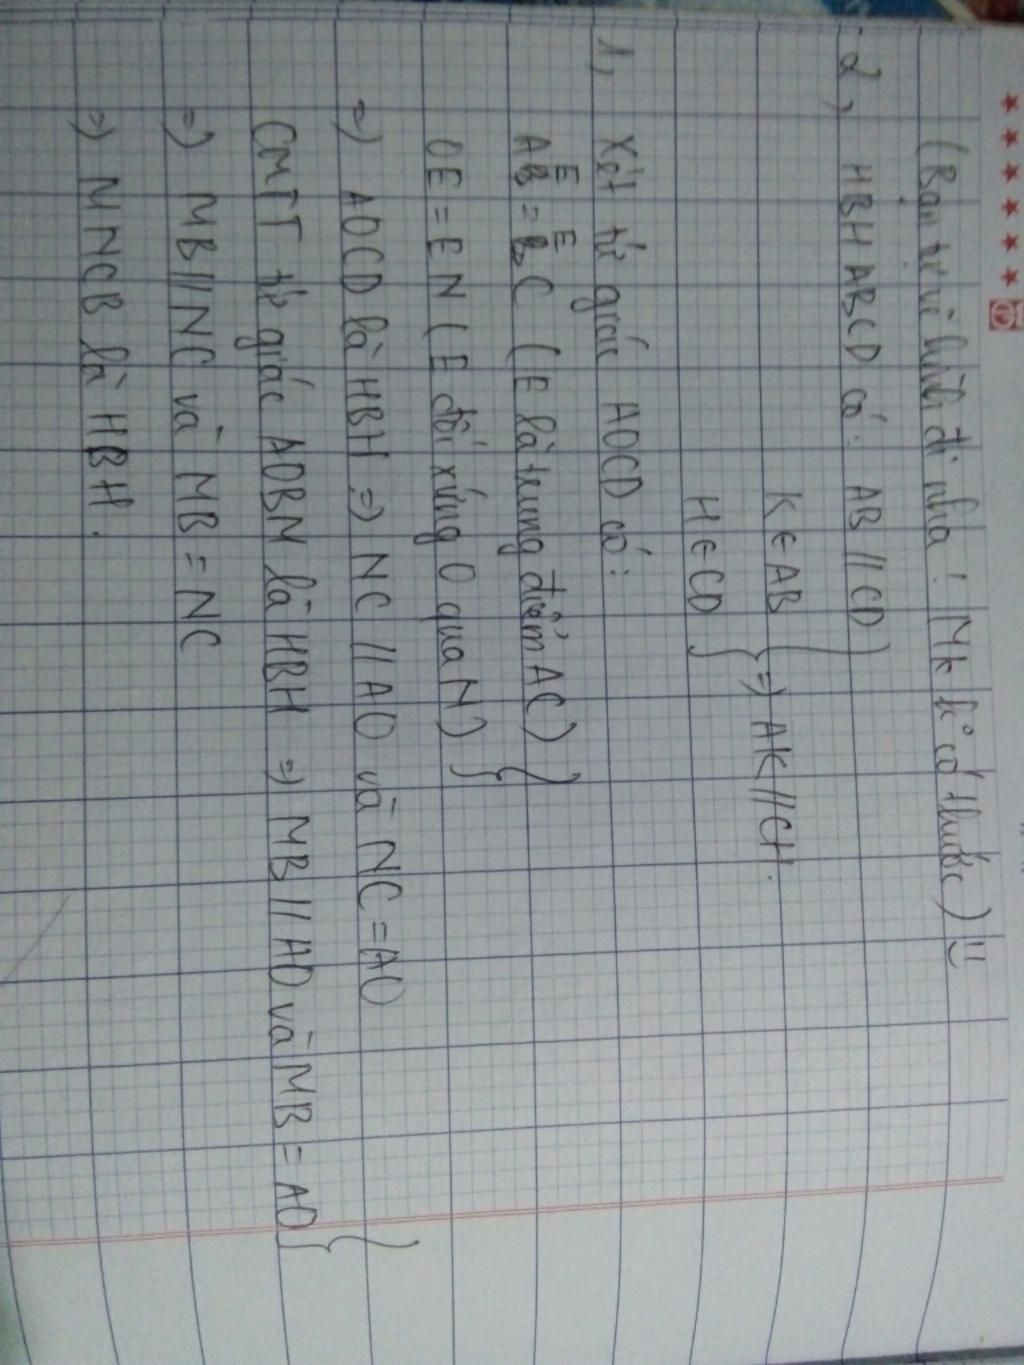 (Bạn tự vẽ hình đi nha! Mk k có thước) =)
2, HBH ABCD có: AB // CD
K ∈ AB
H ∈ CD } => AK // CH.
1, Xét tứ giác AOCD có:
AE = EC (E là trung điểm AC)
OE = EN (E đối xứng O qua N)
=> AOCD là HBH => NC // AO và NC = AO
CMTT tứ giác AOBM là HBH => MB // AO và MB = AO }
=> MB // NC và MB = NC
=> MNCB là HBH.